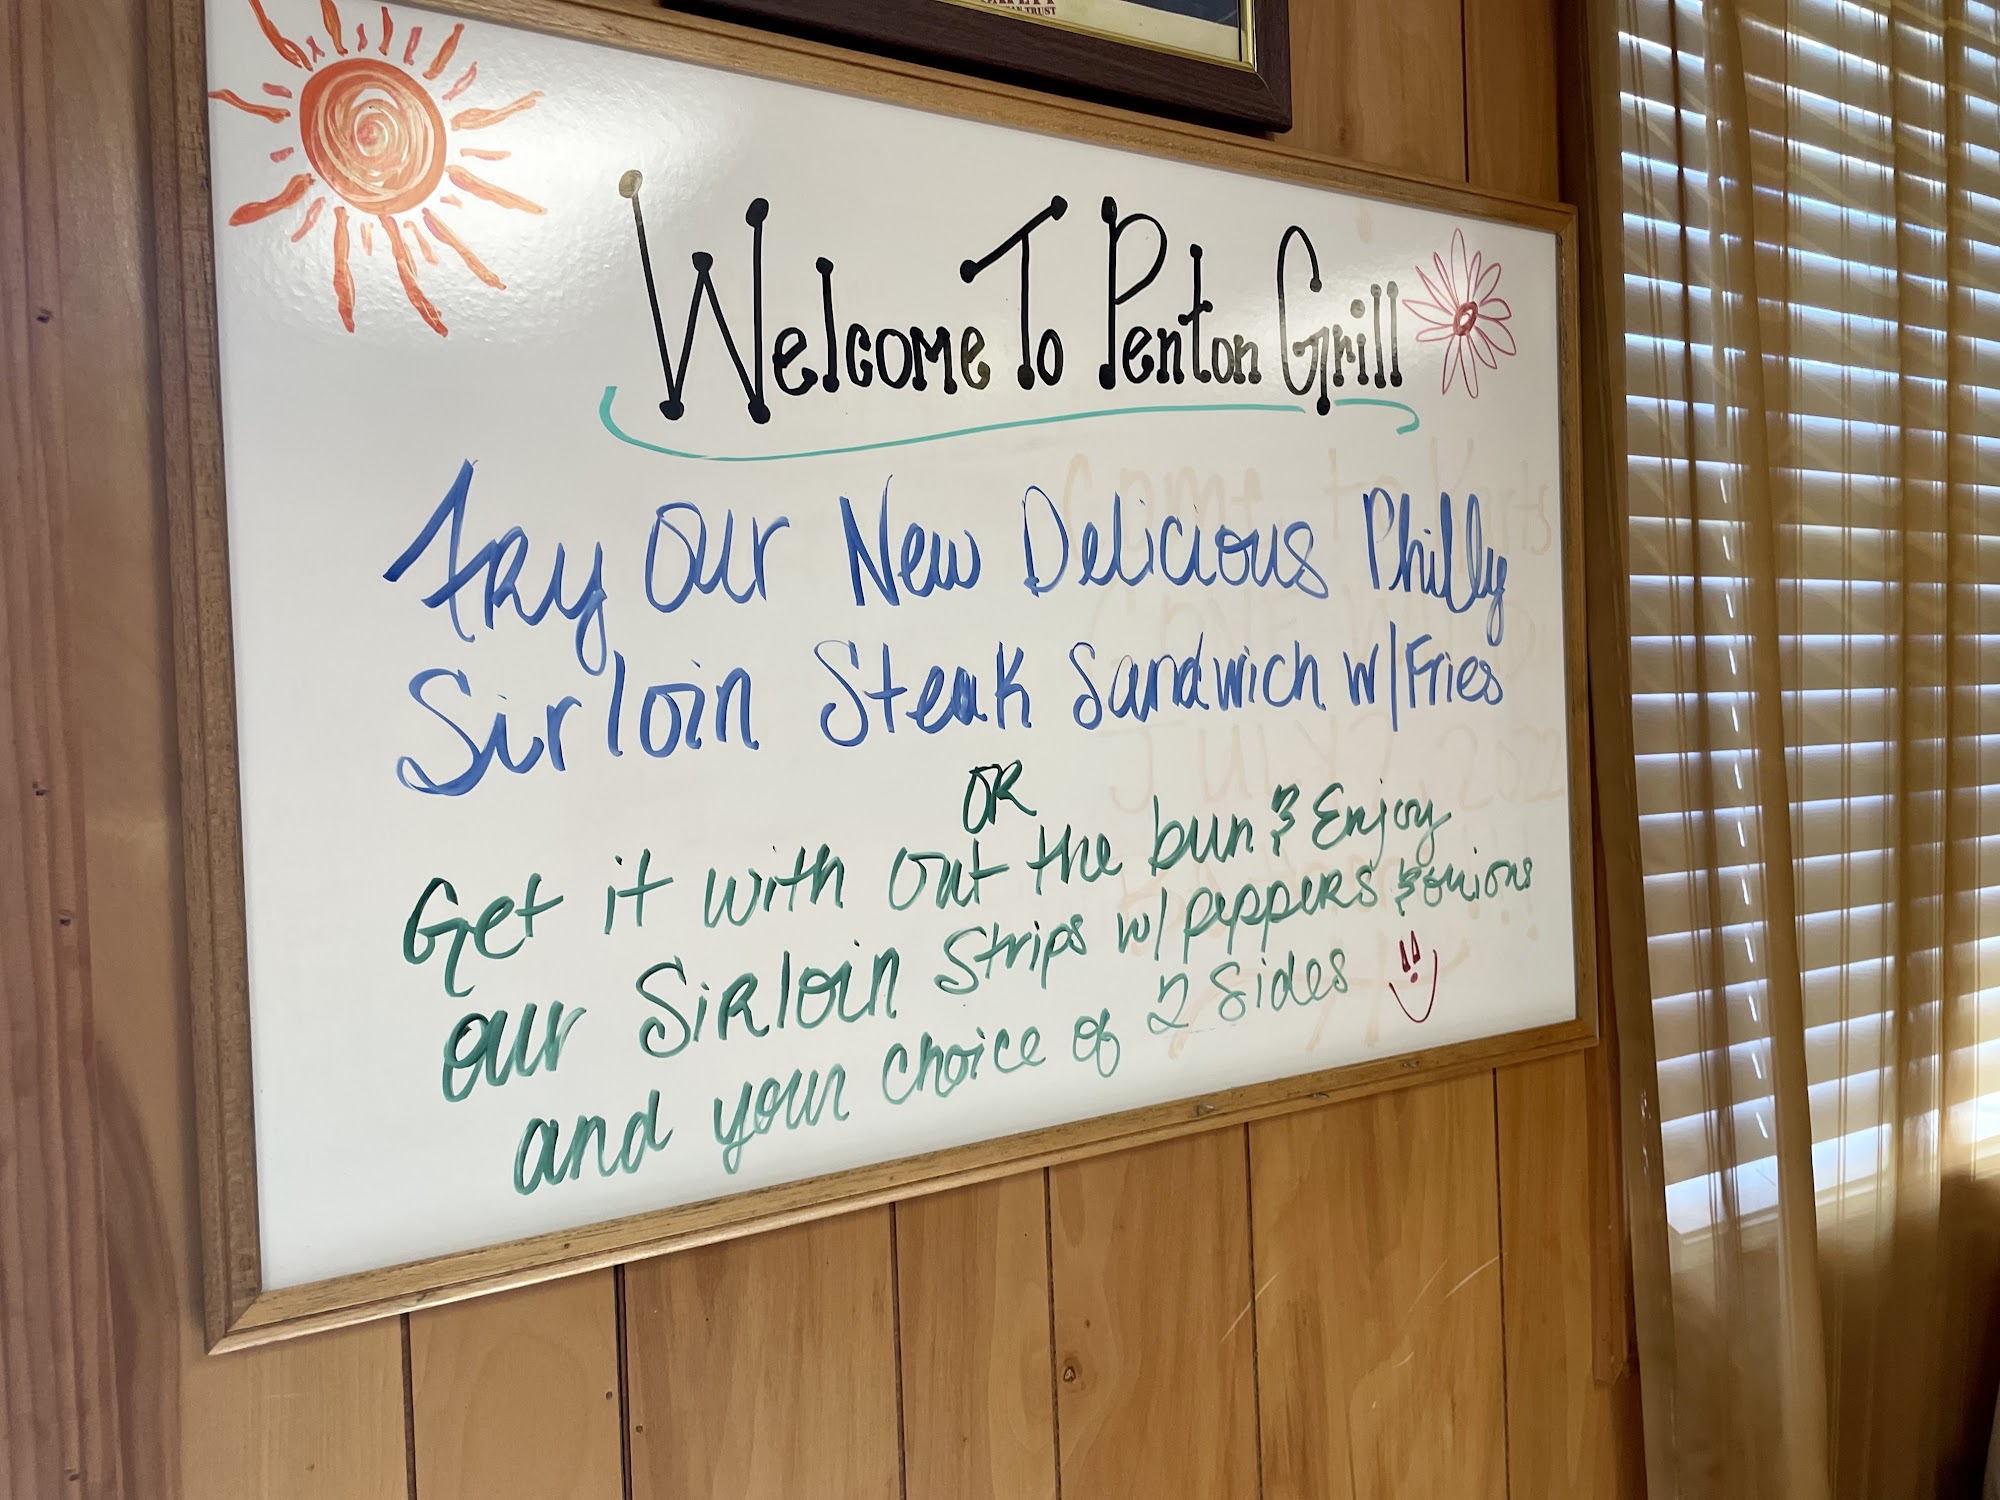 TRUST
Welcome To Penton Grill
Try Our New Delicious Philly
Sirloin Steak Sandwich w/Fries
OR
Get it with out the bun & Enjoy
our Sirloin Strips w/peppers & onions
and your choice of 2 Sides